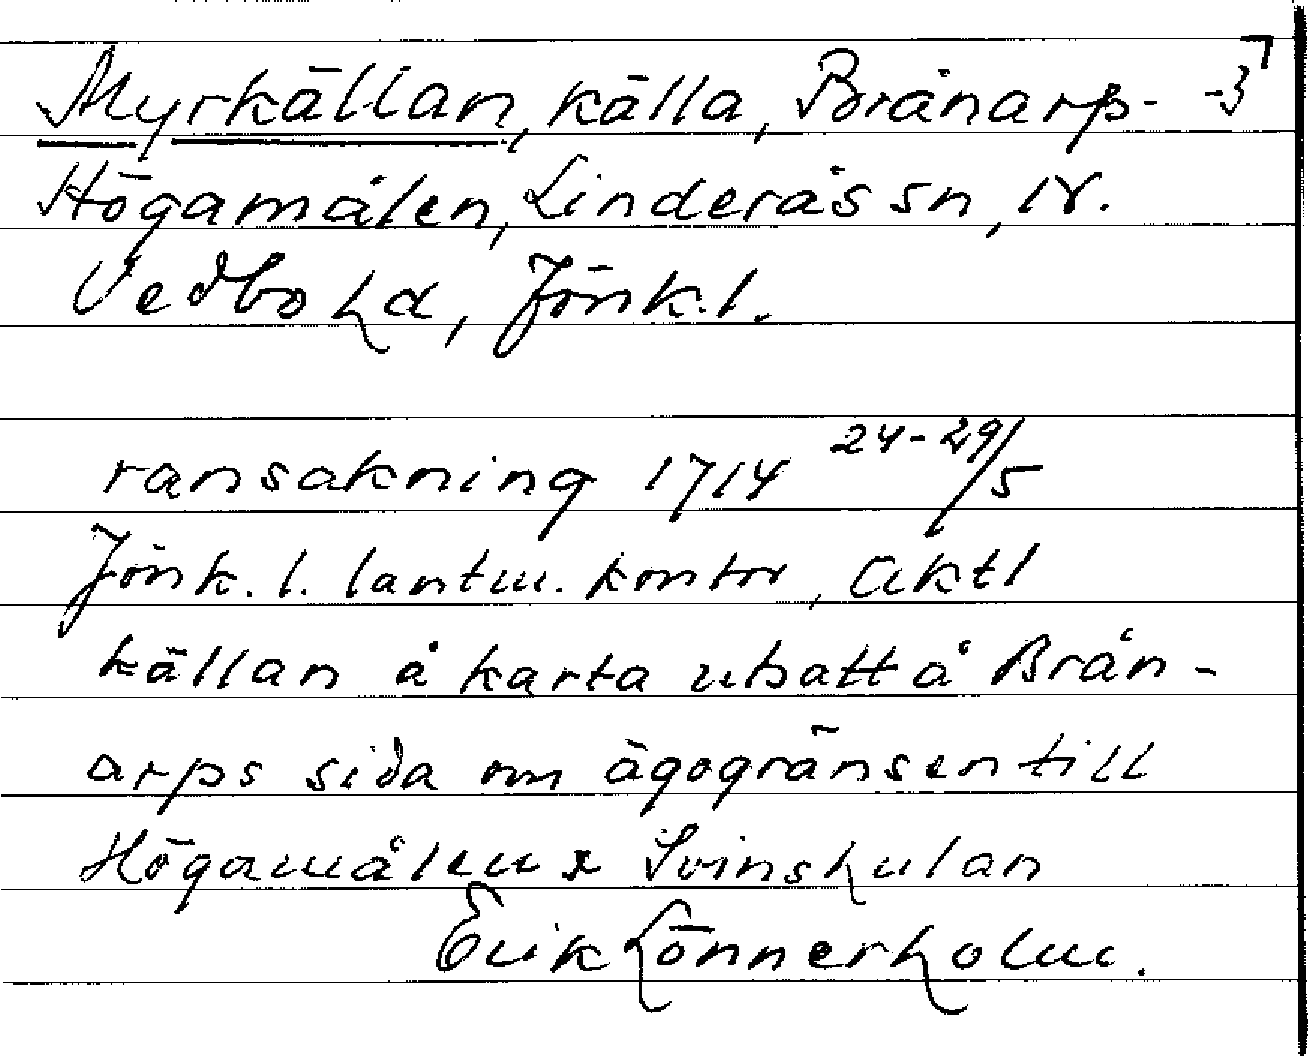 Myrkällan, källa, Brånarp- -3
Högamålen, Linderås sn, N.
Vedbo hd, Jönk.l.
ransakning 1714 24-29/5
Jönk. l. lantm. kontor, akt 1
källan å karta utsatt å Brån-
arps sida om ägogränsen till
Högamålen x Svinshulan
Erik Lönnerholm.